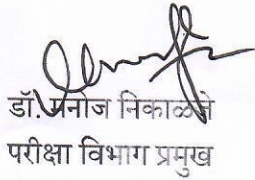 डॉ. मनोज निकाळजे
परीक्षा विभाग प्रमुख